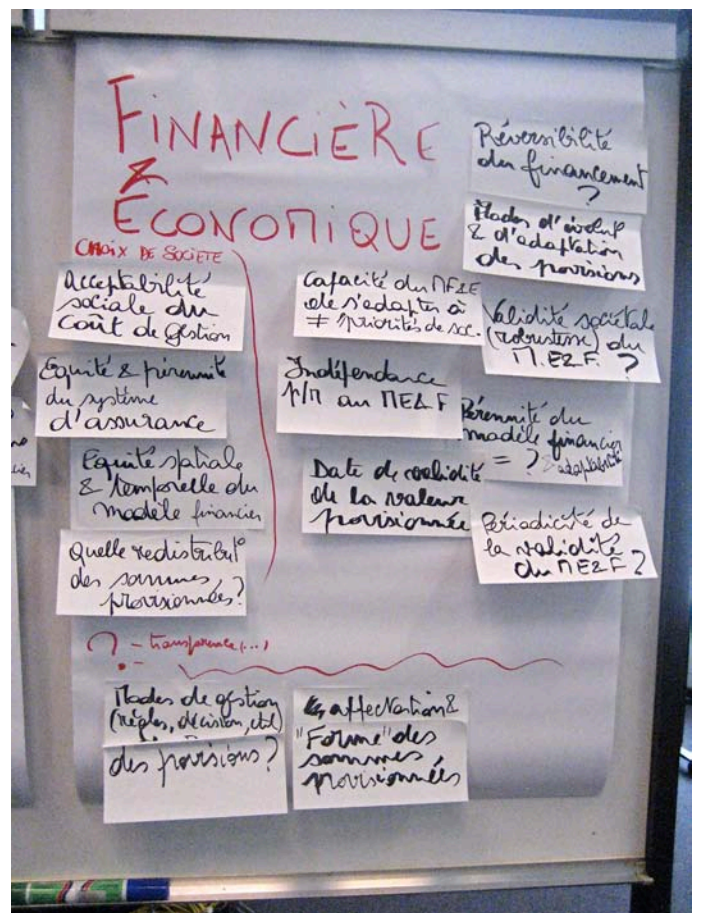 FINANCIÈRE
&
ÉCONOMIQUE
CHOIX DE SOCIETE
Acceptabilité
sociale du
Coût de gestion
Equité & pérennité
du système
d'assurance
Equité spatiale
& temporelle du
modèle financier
Quelle redistribut°
des sommes
provisionnées?
Capacité du MF&E
de s'adapter à
≠ priorités de soc.
Indépendance
p/r au ME&F
Date de validité
de la valeur
provisionnée
Réversibilité
du financement
?
Modes d'évolut°
& d'adaptation
des provisions
Validité sociétale
(robustesse) du
M.E&F. ?
Pérennité du
modèle financier
= ? adaptabilité
Périodicité de
la validité
du ME&F ?
? - transparence (...)
-
Modes de gestion
(règles, décision, ctrl)
des provisions?
↳ affectation &
"Forme" des
sommes
provisionnées